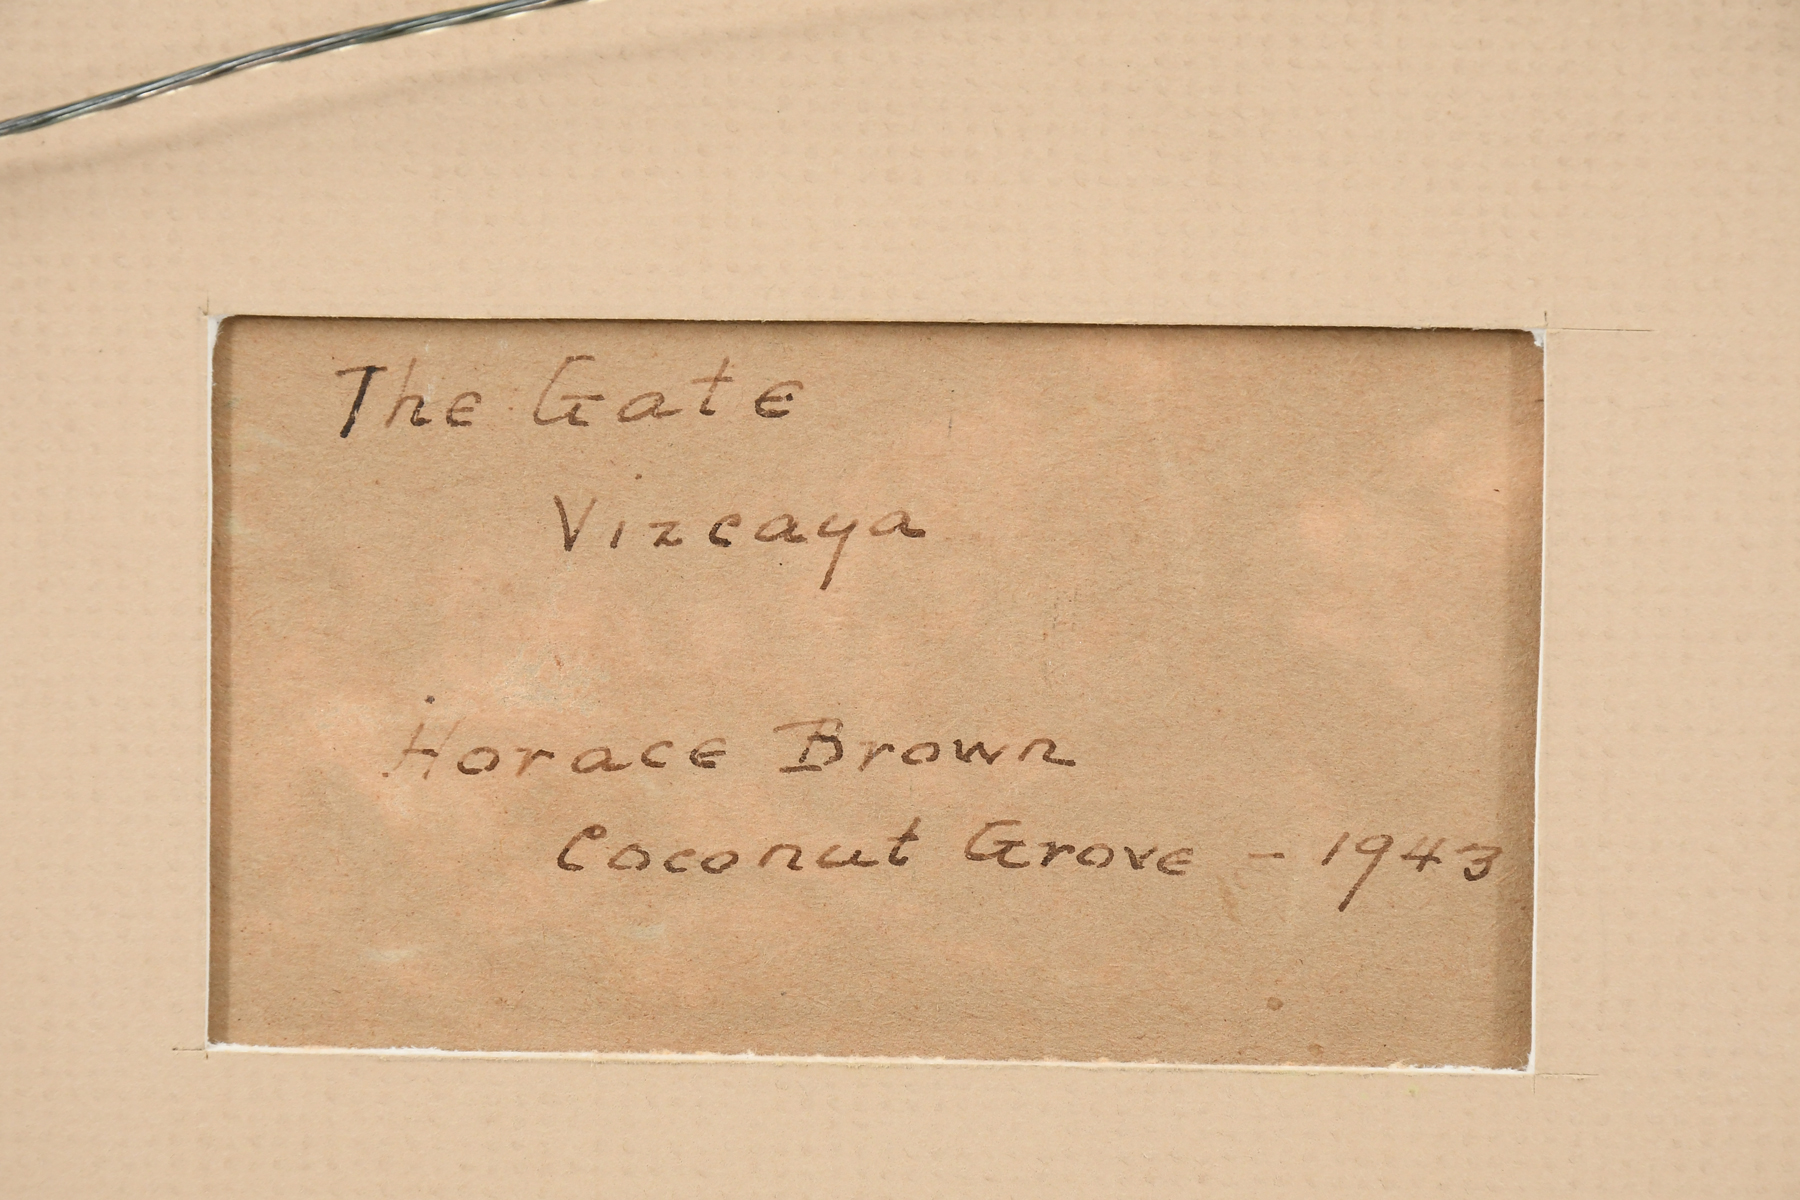 The Gate
Vizcaya
Horace Brown
Coconut Grove - 1943